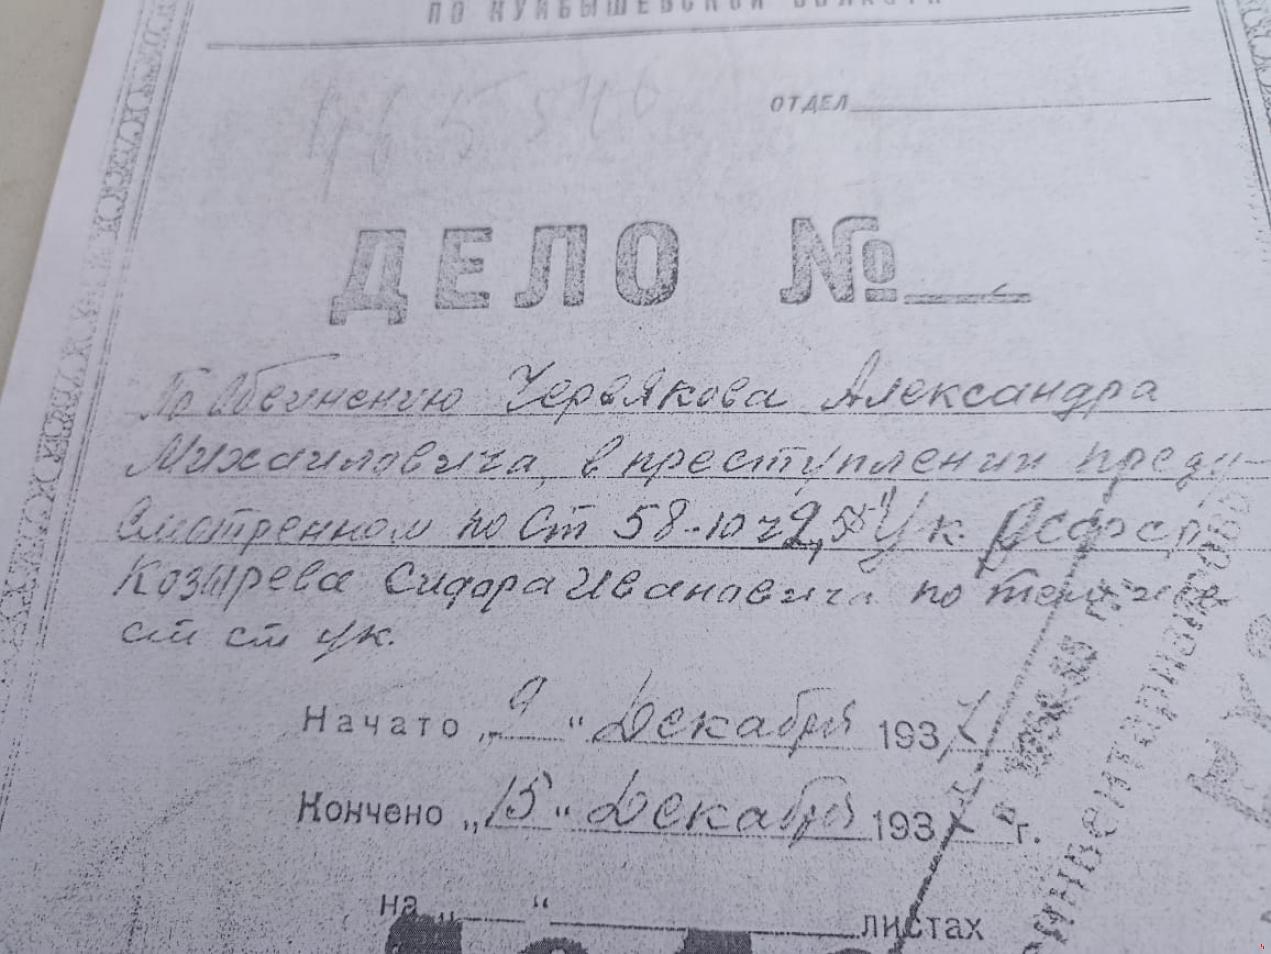 ПО КУЙБЫШЕВСКОЙ ОБЛАСТИ
ОТДЕЛ
ДЕЛО №
По Обвинению Червякова Александра
Михаиловича, в преступлении преду-
смотренном по ст 58-10 ч 2, 58-11 УК. РСФСР
Козырева Сидора Ивановича по тем же
ст ст УК.
Начато „9“ Декабря 1937
Кончено „15“ Декабря 1937 г.
на „ “ листах
ИНВЕНТАРИЗИРОВАНО